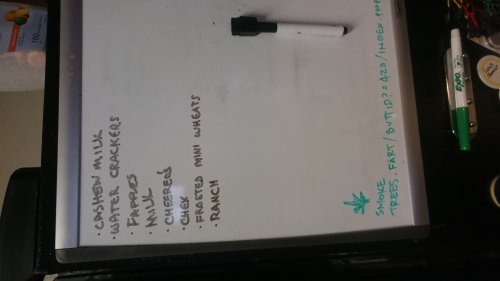 · CASHEW MILK
· WATER CRACKERS
· PAPPLES
· MILK
· CHEEREOS
· CHEX
· FROSTED MINI WHEATS
· RANCH
SMOKE
TREES.FART/BUTTID?=420/INDEX.PHP
EXPO